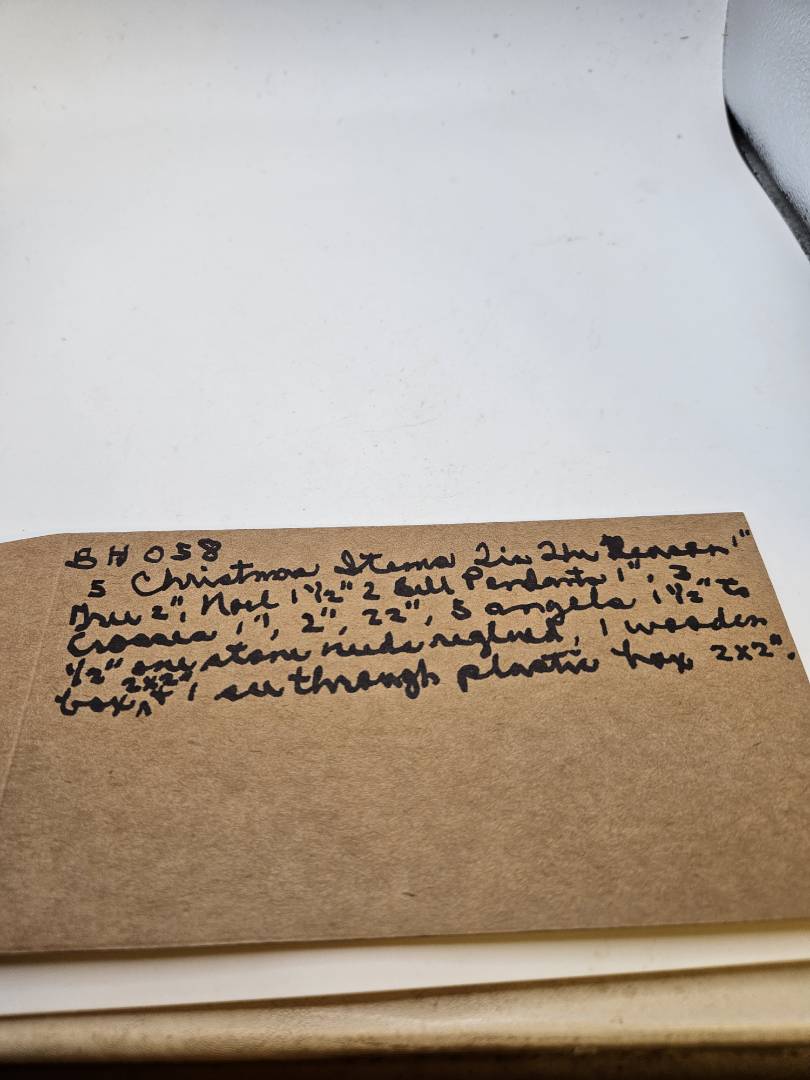 BH 058
5 Christmas Items 2 is The Reason 1"
Tree 2", Noel 1 1/2" 2 Bell Pendants 1", 3
Crosses 1", 2", 2 2", 5 angels 1 1/2" to
1/2" one stone needs reglued, 1 wooden
box 2x2" + 1 see through plastic box 2x2".